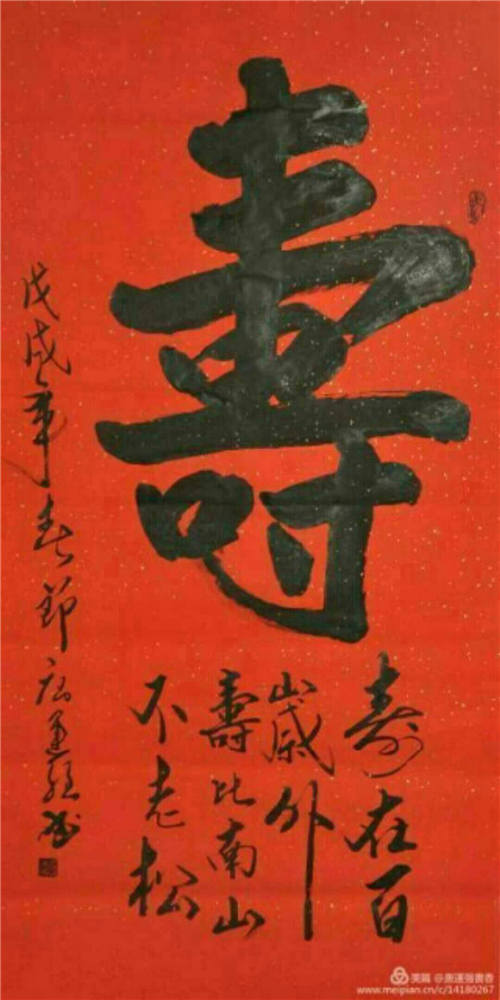 壽
寿在百
嵗外
壽比南山
不老松
戊戌年春節唐運强书
美篇 @唐運强書香
www.meipian.cn/c/14180267